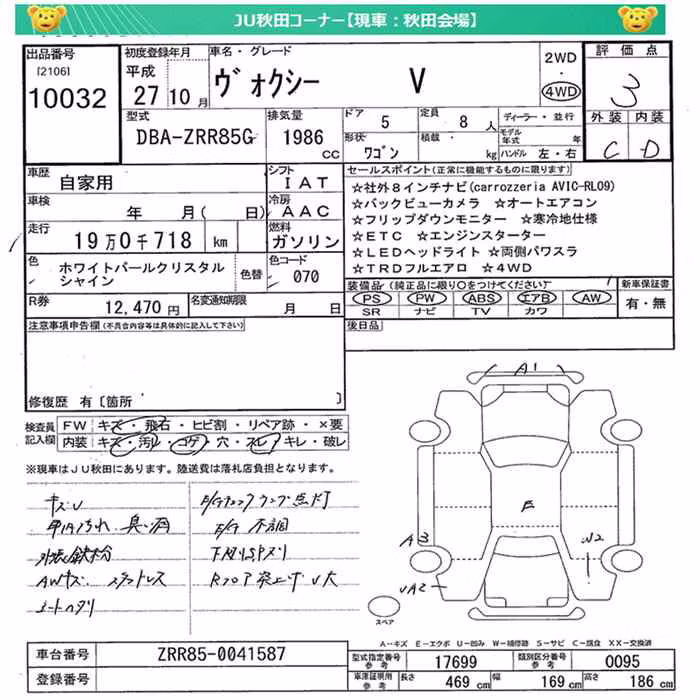 JU秋田コーナー【現車：秋田会場】
出品番号
[2106]
10032
初度登録年月
平成
27年10月
車名・グレード
ヴォクシー V
2WD
・
4WD
評価点
3
型式
DBA-ZRR85G
排気量
1986 cc
ドア 5
定員 8人
形状 ワゴン
積載 kg
ディーラー・並行
モデル年式 年
ハンドル 左・右
外装 内装
C D
車歴
自家用
シフト
IAT
車検
年 月(日)
冷房
AAC
走行
19万0千718 km
燃料
ガソリン
色
ホワイトパールクリスタルシャイン
色替
色コード
070
R券
12,470円
名変通知期限
月 日
セールスポイント(正常に機能するものに限ります)
☆社外8インチナビ(carrozzeria AVIC-RL09)
☆バックビューカメラ ☆オートエアコン
☆フリップダウンモニター ☆寒冷地仕様
☆ETC ☆エンジンスターター
☆LEDヘッドライト ☆両側パワスラ
☆TRDフルエアロ ☆4WD
装備品(純正品に限り〇をつけてください)
PS PW ABS エアB AW
SR ナビ TV カワ
新車保証書
有・無
注意事項申告欄(不具合内容等は具体的に記入して下さい)
後日品
修復歴 有〔箇所 〕
検査員記入欄
FW キズ・飛石・ヒビ割・リペア跡・×要
内装 キズ・汚れ・コゲ・穴・スレ・キレ・破レ
※現車はJU秋田にあります。陸送費は落札店負担となります。
キズU
E/Gチェックランプ点灯
E/G不調
AWキズ
A1
E
A3
W2
UA2
スペア
A－キズ E－エクボ U－凹み W－補修跡 S－サビ C－腐食 XX－交換済
車台番号
ZRR85-0041587
登録番号
型式指定番号 参考
17699
類別区分番号 参考
0095
車庫証明用 参考
長さ 469cm
幅 169cm
高さ 186cm